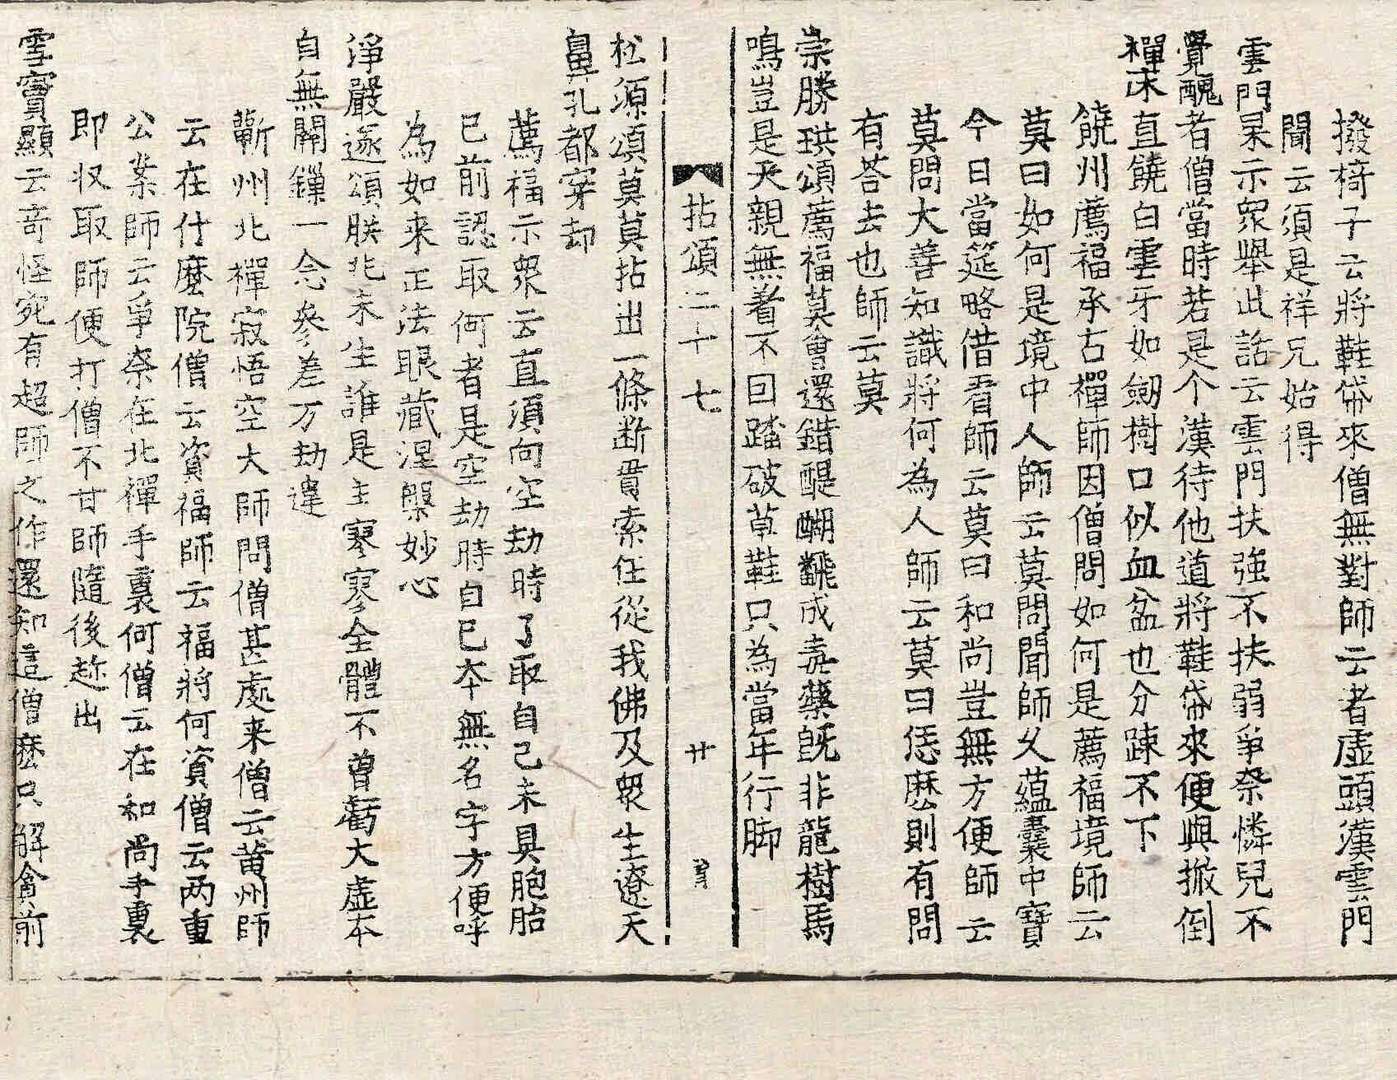 撥椅子云將鞋帒來僧無對師云者虛頭漢雲門
聞云須是祥兄始得
雲門杲示眾舉此話云雲門扶強不扶弱爭柰憐兒不
覺醜者僧當時若是个漢待他道將鞋帒來便與掀倒
禪床直饒白雲牙如劒樹口似血盆也分踈不下
饒州薦福承古禪師因僧問如何是薦福境師云
莫曰如何是境中人師云莫問聞師乆蘊囊中寶
今日當筵略借看師云莫曰和尚豈無方便師云
莫問大善知識將何為人師云莫曰恁麽則有問
有荅去也師云莫
崇勝珙頌薦福莫會還錯醍醐飜成毒藥旣非龍樹馬
鳴豈是天親無著不回踏破草鞋只為當年行脚
拈頌二十七 廿
松源頌莫莫拈出一條断貫索任從我佛及眾生遼天
鼻孔都穿却
薦福示眾云直須向空劫時了取自己未具胞胎
已前認取何者是空劫時自己夲無名字方便呼
為如来正法眼藏涅槃妙心
淨嚴遂頌朕兆未生誰是主寥寥全體不曾虧大虛本
自無關鏁一念參差万劫違
蘄州北禪寂悟空大師問僧甚處来僧云黄州師
云在什麽院僧云資福師云福將何資僧云两重
公案師云爭柰在北禪手裏何僧云在和尚手裏
即収取師便打僧不甘師隨後趂出
雪竇顯云奇怪宛有超師之作還知這僧麽只解貪前